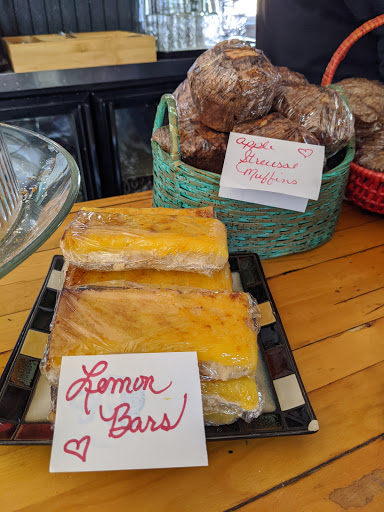 Apple
Streusal
Muffins
Lemon
Bars